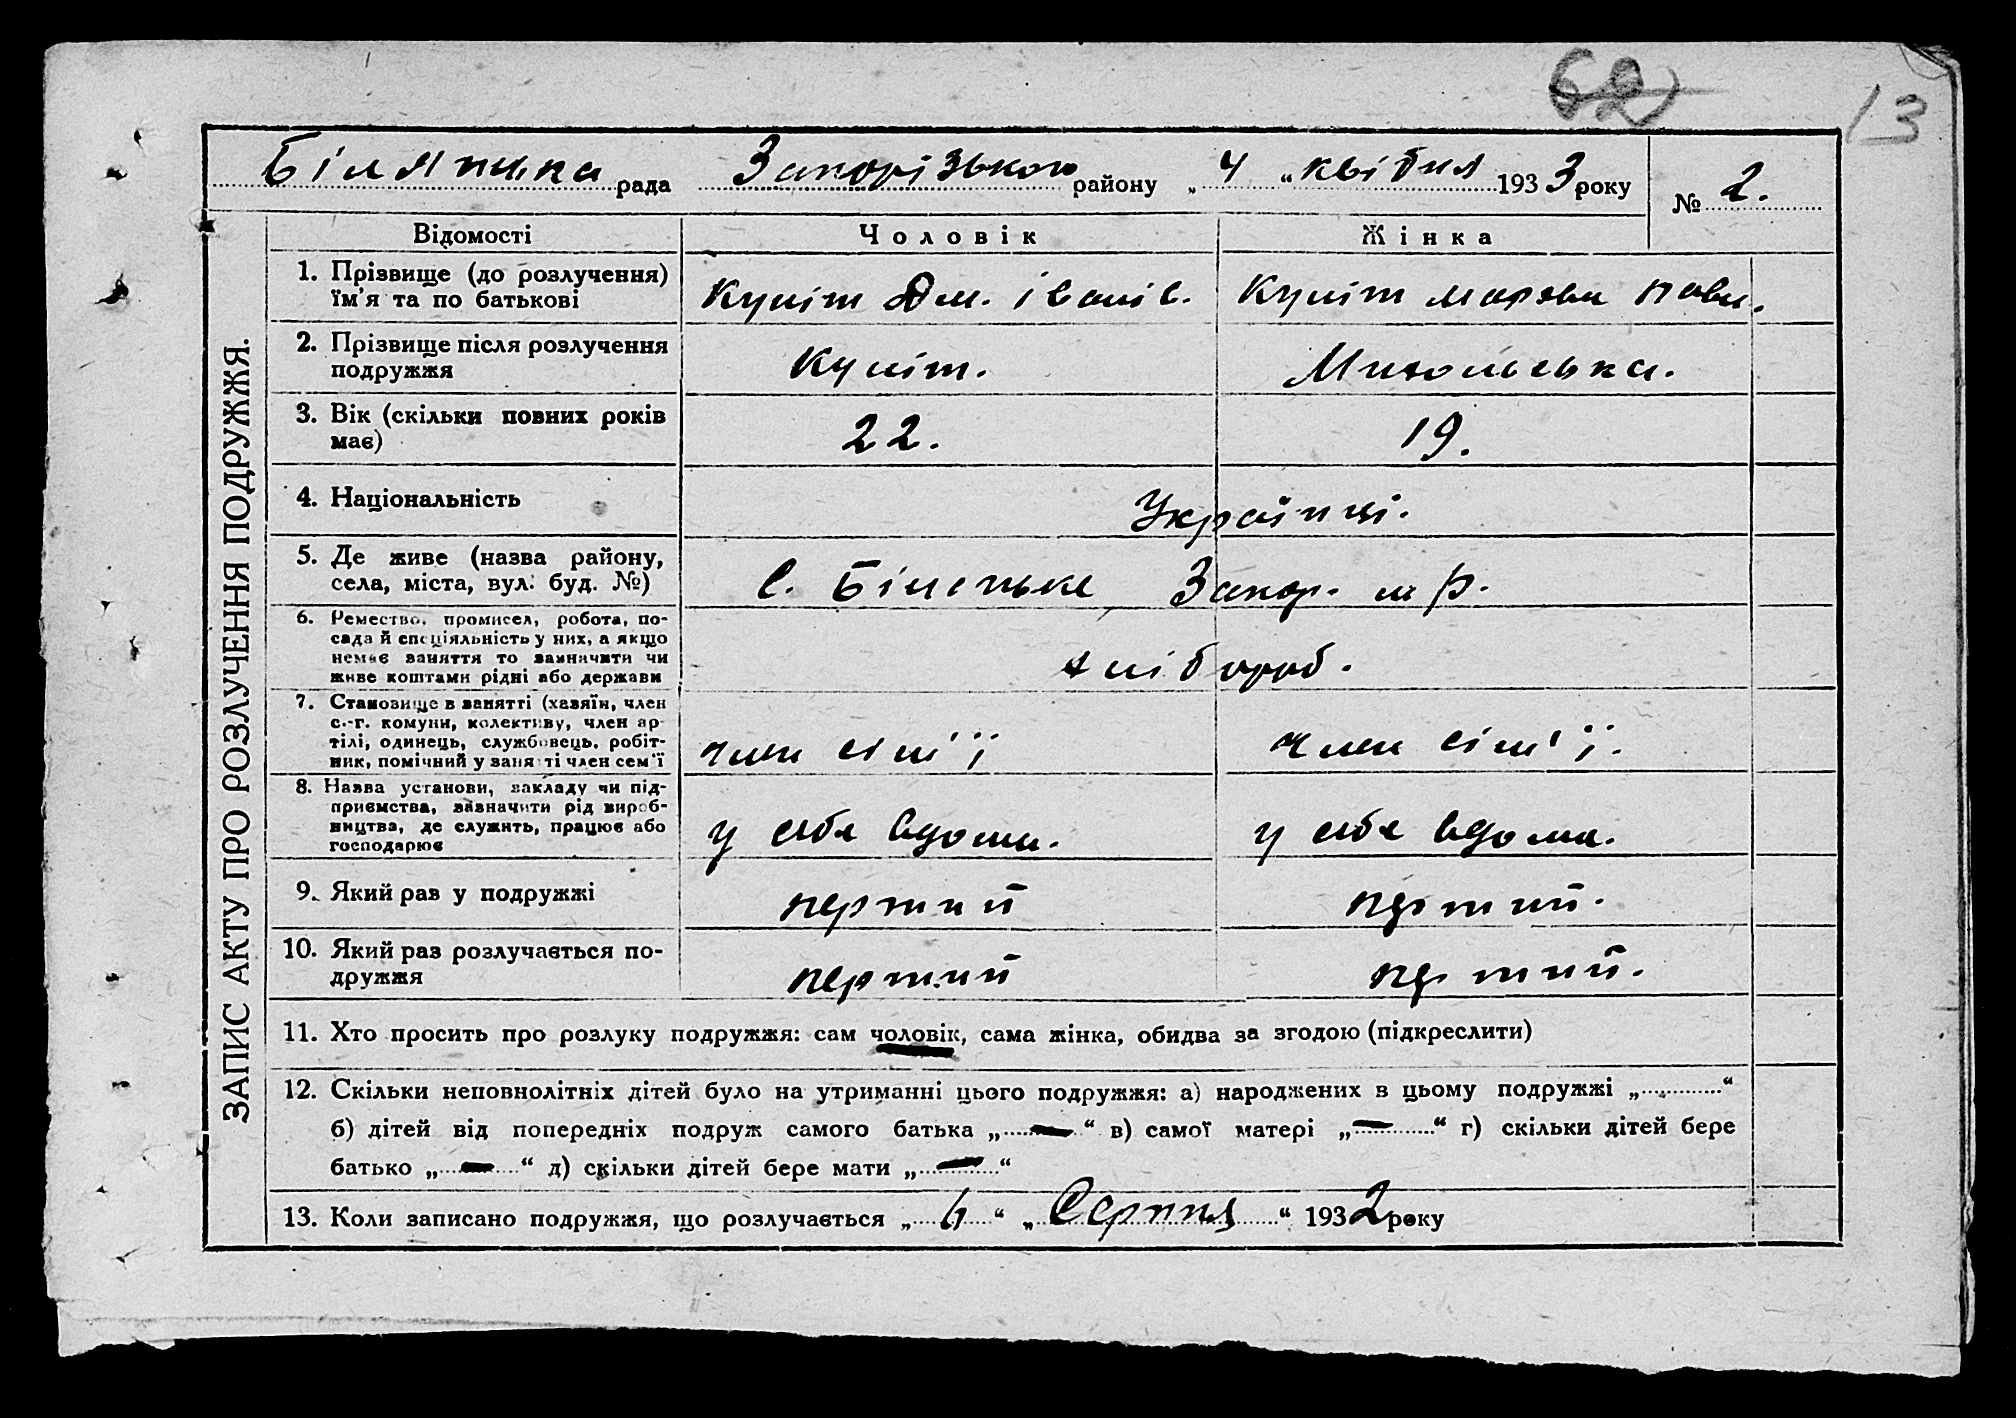 62
13
Білянька рада Запорізького району „ 4 “ квітня 1933 року № 2.
ЗАПИС АКТУ ПРО РОЗЛУЧЕННЯ ПОДРУЖЖЯ.
Відомості Чоловік Жінка
1. Прізвище (до розлучення)
їм’я та по батькові Куліт Дм. Іванів. Куліт Павл.
2. Прізвище після розлучення
подружжя Куліт.
3. Вік (скільки повних років
має) 22. 19.
4. Національність Українці.
5. Де живе (назва району,
села, міста, вул. буд. №) с. Біленьке Запор. р.
6. Ремество, промисел, робота, по-
сада й спеціяльність у них, а якщо
немає заняття то зазначити чи
живе коштами рідні або держави хлібороб.
7. Становище в занятті (хазяїн, член
с.-г. комуни, колективу, член ар-
тілі, одинець, службовець, робіт-
ник, помічний у занятті член сем’ї член сім'ї член сім'ї.
8. Назва установи, закладу чи під-
приємства, зазначити рід вироб-
ництва, де служить, працює або
господарює у себе вдома. у себе вдома.
9. Який раз у подружжі перший перший.
10. Який раз розлучається по-
дружжя перший перший.
11. Хто просить про розлуку подружжя: сам чоловік, сама жінка, обидва за згодою (підкреслити)
12. Скільки неповнолітніх дітей було на утриманні цього подружжя: а) народжених в цьому подружжі „............“
б) дітей від попередніх подруж самого батька „ — “ в) самої матері „ — “ г) скільки дітей бере
батько „ — “ д) скільки дітей бере мати „ — “
13. Коли записано подружжя, що розлучається „ 6 “ „ Серпня “ 1932 року